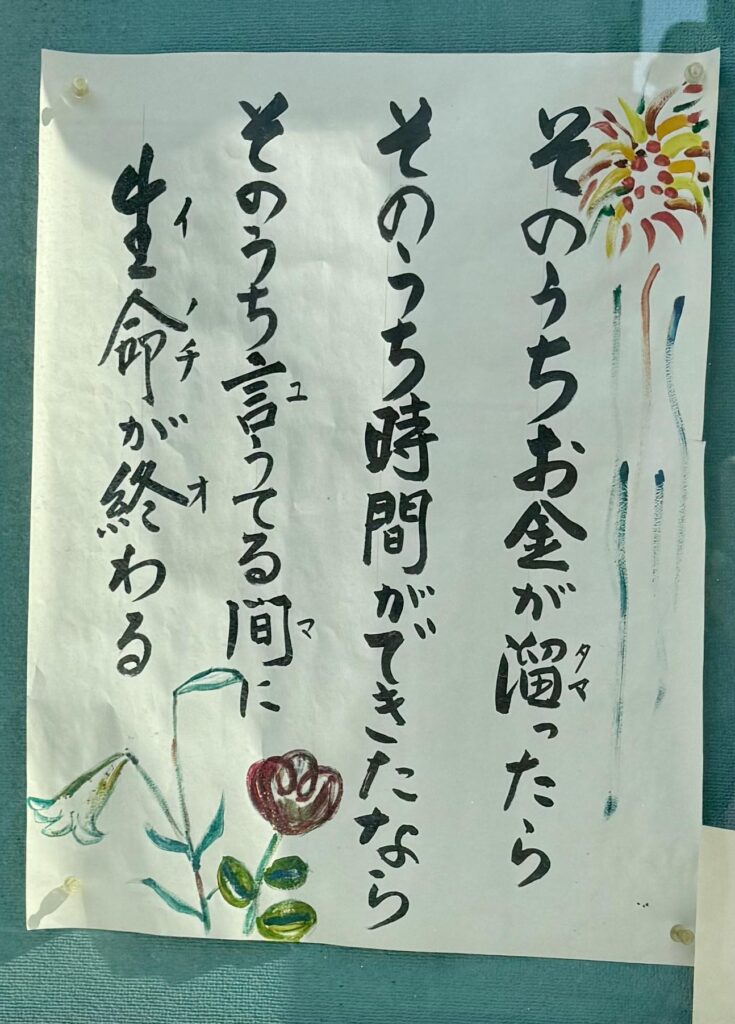 そのうちお金が溜ったら
タマ
そのうち時間ができたなら
そのうち言うてる間に
ユ
マ
生命が終わる
イノチ
オ